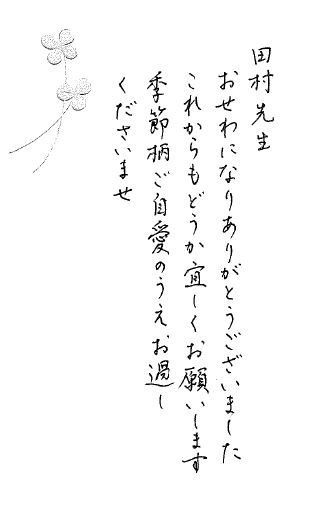 田村先生
おせわになりありがとうございました
これからもどうか宜しくお願いします
季節柄ご自愛のうえお過し
くださいませ